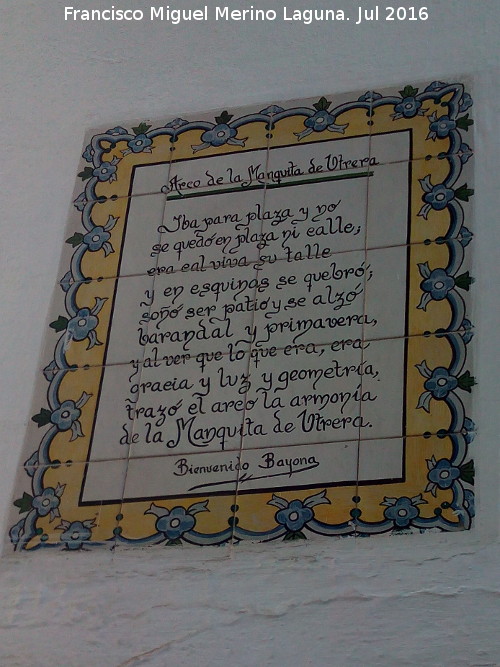 Francisco Miguel Merino Laguna. Jul 2016
Arco de la Manquita de Utrera
Iba para plaza y no
se quedó en plaza ni calle;
era cal viva su talle
y en esquinas se quebró;
soñó ser patio y se alzó
barandal y primavera,
y al ver que lo que era, era
gracia y luz y geometría,
trazó el arco la armonía
de la Manquita de Utrera.
Bienvenido Bayona